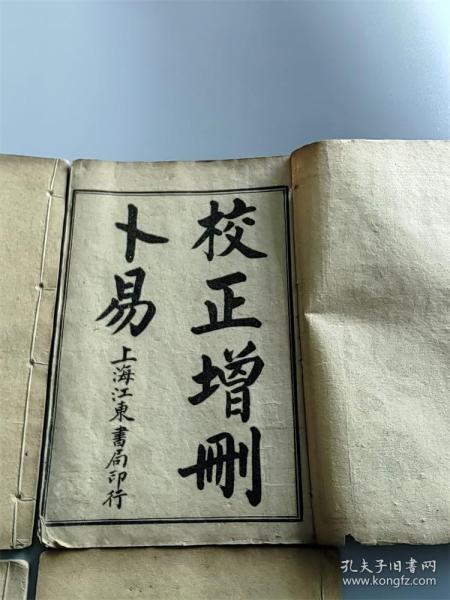 校正增刪
卜易
上海江東書局印行
孔夫子旧书网
www.kongfz.com